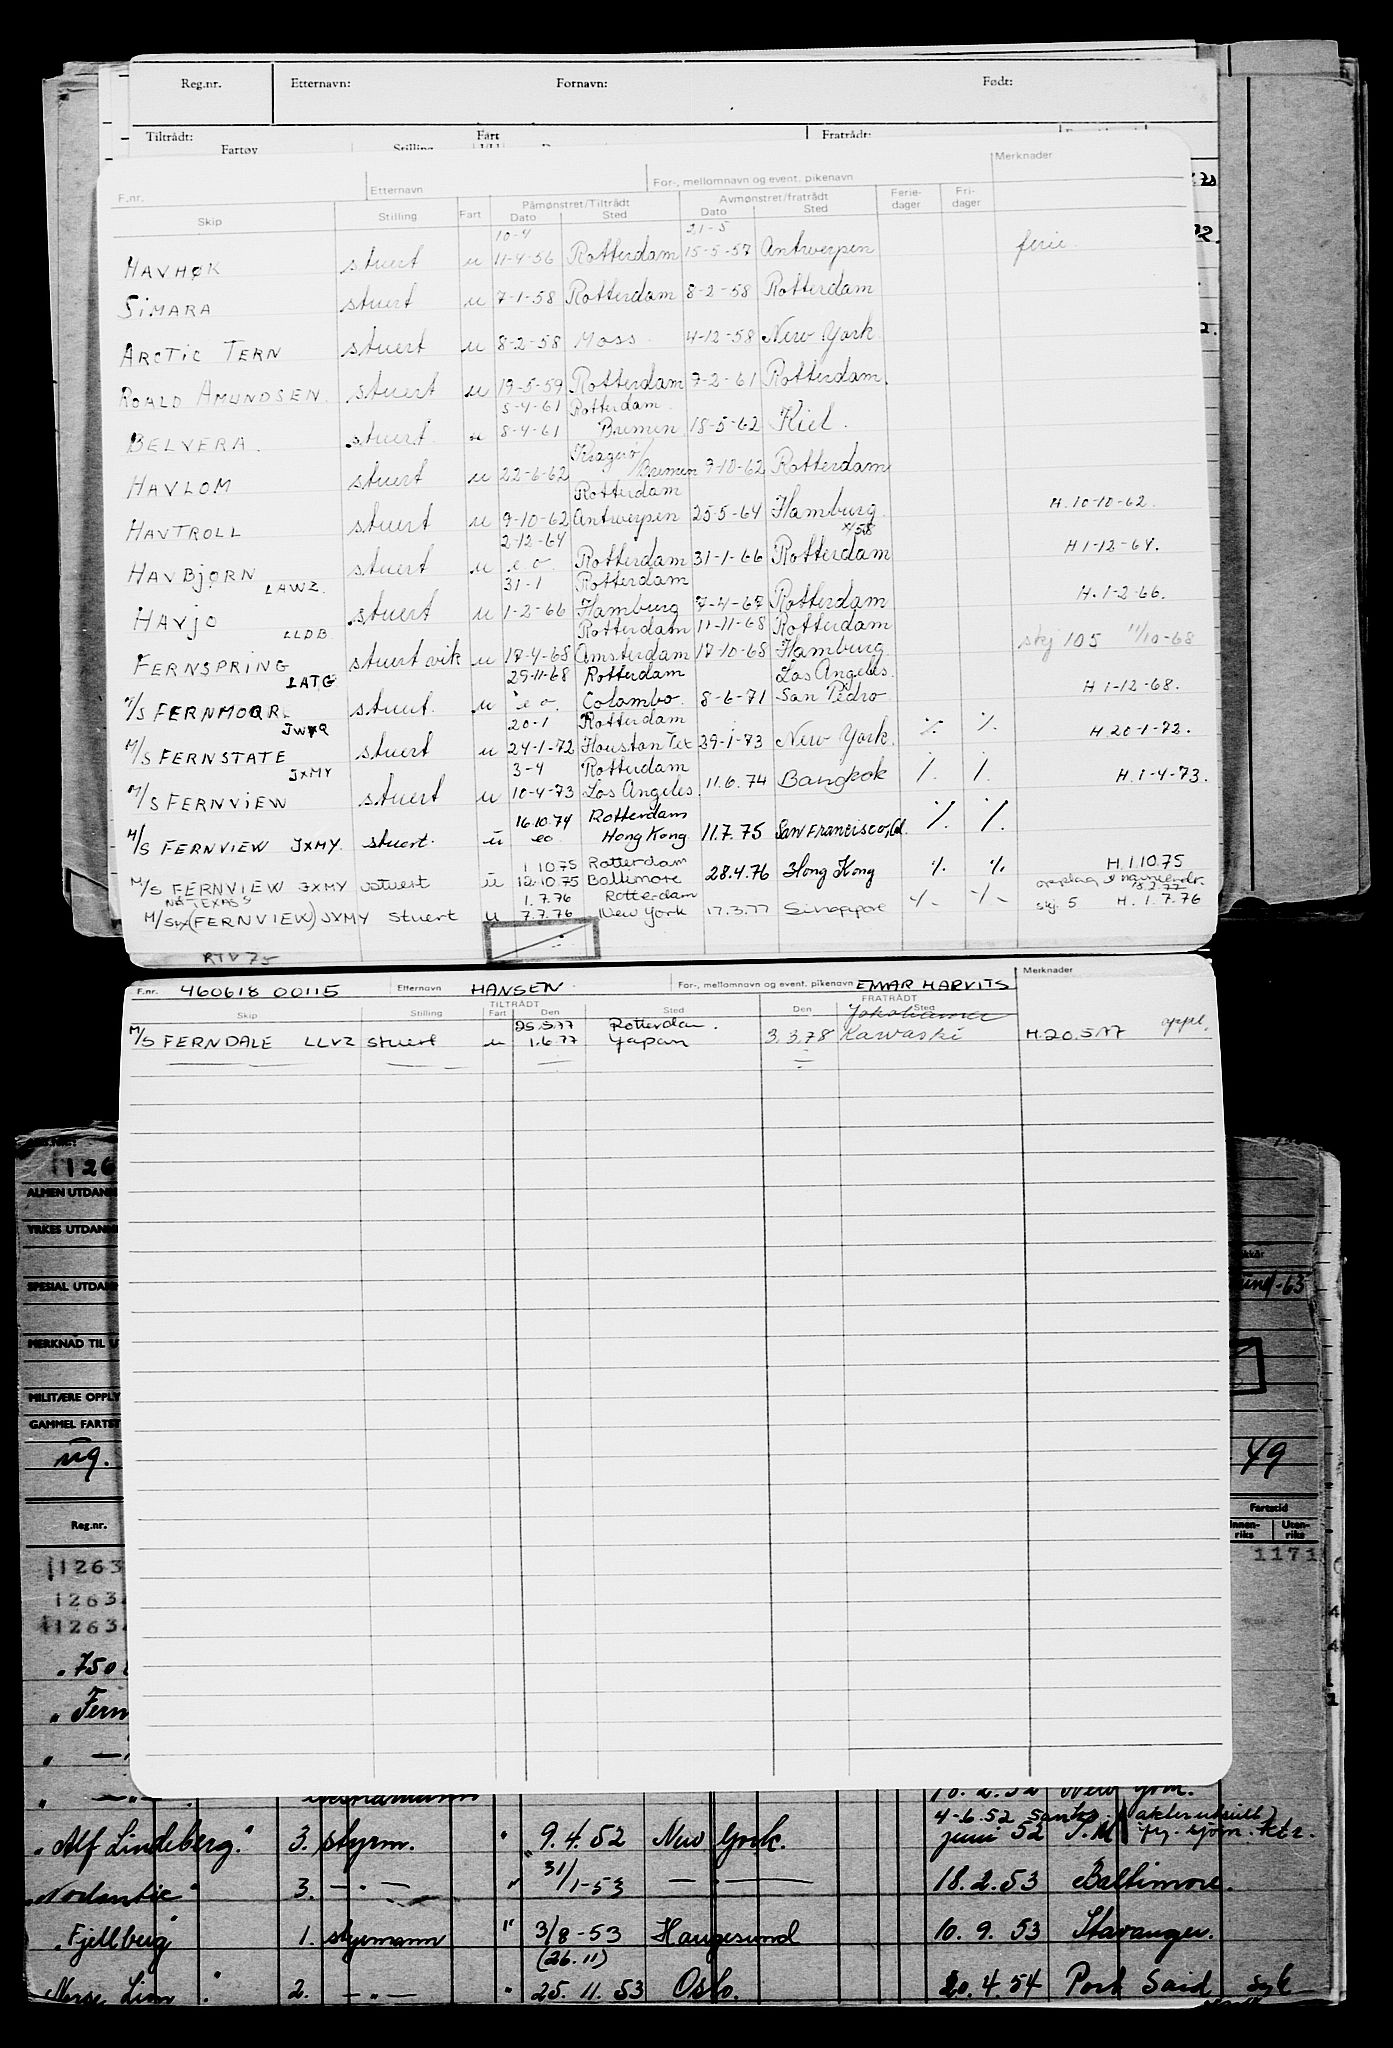 Reg.nr. Etternavn: Fornavn: Født:
Tiltrådt: Fart Fratrådt:
Fartøy Stilling
F.nr. Etternavn For-, mellomnavn og event. pikenavn Merknader
Skip Stilling Fart Påmønstret/Tiltrådt Dato Sted Avmønstret/fratrådt Dato Sted Ferie-dager Fri-dager
10-4 21-5
HAVHØK stuert u 11-4-56 Rotterdam 15-5-57 Antwerpen ferie.
SIMARA stuert u 7-1-58 Rotterdam 8-2-58 Rotterdam
ARCTIC TERN stuert u 8-2-58 Moss. 4-12-58 New York
ROALD AMUNDSEN stuert u 19-5-59 Rotterdam 7-2-61 Rotterdam.
5-4-61 Rotterdam.
BELVERA. stuert. u 8-4-61 Bremen 18-5-62 Kiel.
Kragerø/
HAVLOM stuert u 22-6-62 Bremen 9-10-62 Rotterdam
Rotterdam
HAVTROLL stuert u 9-10-62 Antwerpen 25-5-64 Hamburg. H.10-10-62.
2-12-64
HAVBJØRN LAWZ. stuert u e o Rotterdam 31-1-66 Rotterdam H 1-12-64.
31-1 Rotterdam
HAVJO LLDB. stuert u 1-2-66 Hamburg 7-4-67 Rotterdam H.1-2-66.
Rotterdam 11-11-68 Rotterdam
FERNSPRING LATG stuert vik u 17-4-68 Amsterdam 17-10-68 Hamburg skj 105 11/10-68
29-11-68 Rotterdam Los Angeles.
M/S FERNMOOR JWXQ stuert. u e o. Colombo. 8-6-71 San Pedro H 1-12-68.
20-1 Rotterdam
M/S FERNSTATE JXMY stuert u 24-1-72 Houston Tex 29-1-73 New York. % % H.20-1-72.
3-4 Rotterdam
M/S FERNVIEW stuert u 10-4-73 Los Angeles 11.6.74 Bangkok % % H.1-4-73.
16.10.74 Rotterdam
M/S FERNVIEW JXMY. stuert. u eo Hong Kong 11.7.75 San Francisco, Cal. % %
1 10 75 Rotterdam
M/S FERNVIEW JXMY stuert u 12.10.75 Baltimore 28.4.76 Hong Kong % % H.1.10.75
NÅ "TEXAS" 1.7.76 Rotterdam
M/S (FERNVIEW) JXMY stuert u 7.7.76 New York 17.3.77 Singapore % % skj. 5 H. 1.7.76
RTV 75
F.nr. 460618 00115 Etternavn HANSEN For-, mellomnavn og event. pikenavn EINAR HARVITS Merknader
Skip Stilling TILTRÅDT Fart Den Sted FRATRÅDT Den Sted
25.5.77 Rotterdam. Yokohama
M/S FERNDALE LLVZ stuert u 1.6.77 Yapan 3.3.78 Kawaski H.20.5.77 oppl.
1126
ALMEN UTDANN
YRKES UTDANN
SPESIAL UTDAN
MERKNAD TIL U
MILITÆRE OPPLY
GAMMEL FARTST
ug. 49
Reg.nr. Fartstid
Innen-riks Uten-riks
11263 1171
1263
11263
" 750
" Fern
" Alf Lindeberg." 3. styrm. " 9.4.52 New York. juni 52
"Nordantic" 3. — " — " 31/1-53 — " — 18.2.53 Baltimore.
"Fjellberg" 1. styrmann " 3/8-53 Haugesund 10.9.53 Stavanger.
(26.11)
Norse Lion " 2. — " — " 25.11.53 Oslo. 20.4.54 Port Said syk